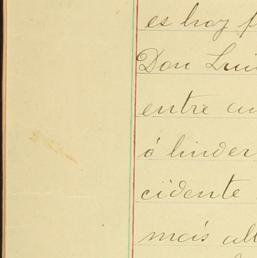 es hoy
Don Luis
entre
á linder
cidente
mais all